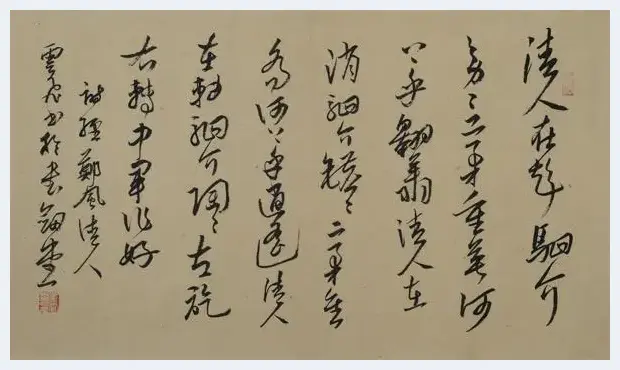 清人在彭駟介
旁〻二矛重英河
上乎翱翔清人在
消駟介鑣〻二矛重
喬河上乎逍遥清人
在軸駟介陶〻左旋
右轉中軍作好
詩經鄭風清人
雲書於書劍堂